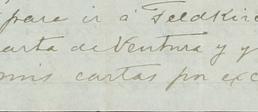 para ir á Feldkirc
carta de Ventura y y
mis cartas por exc